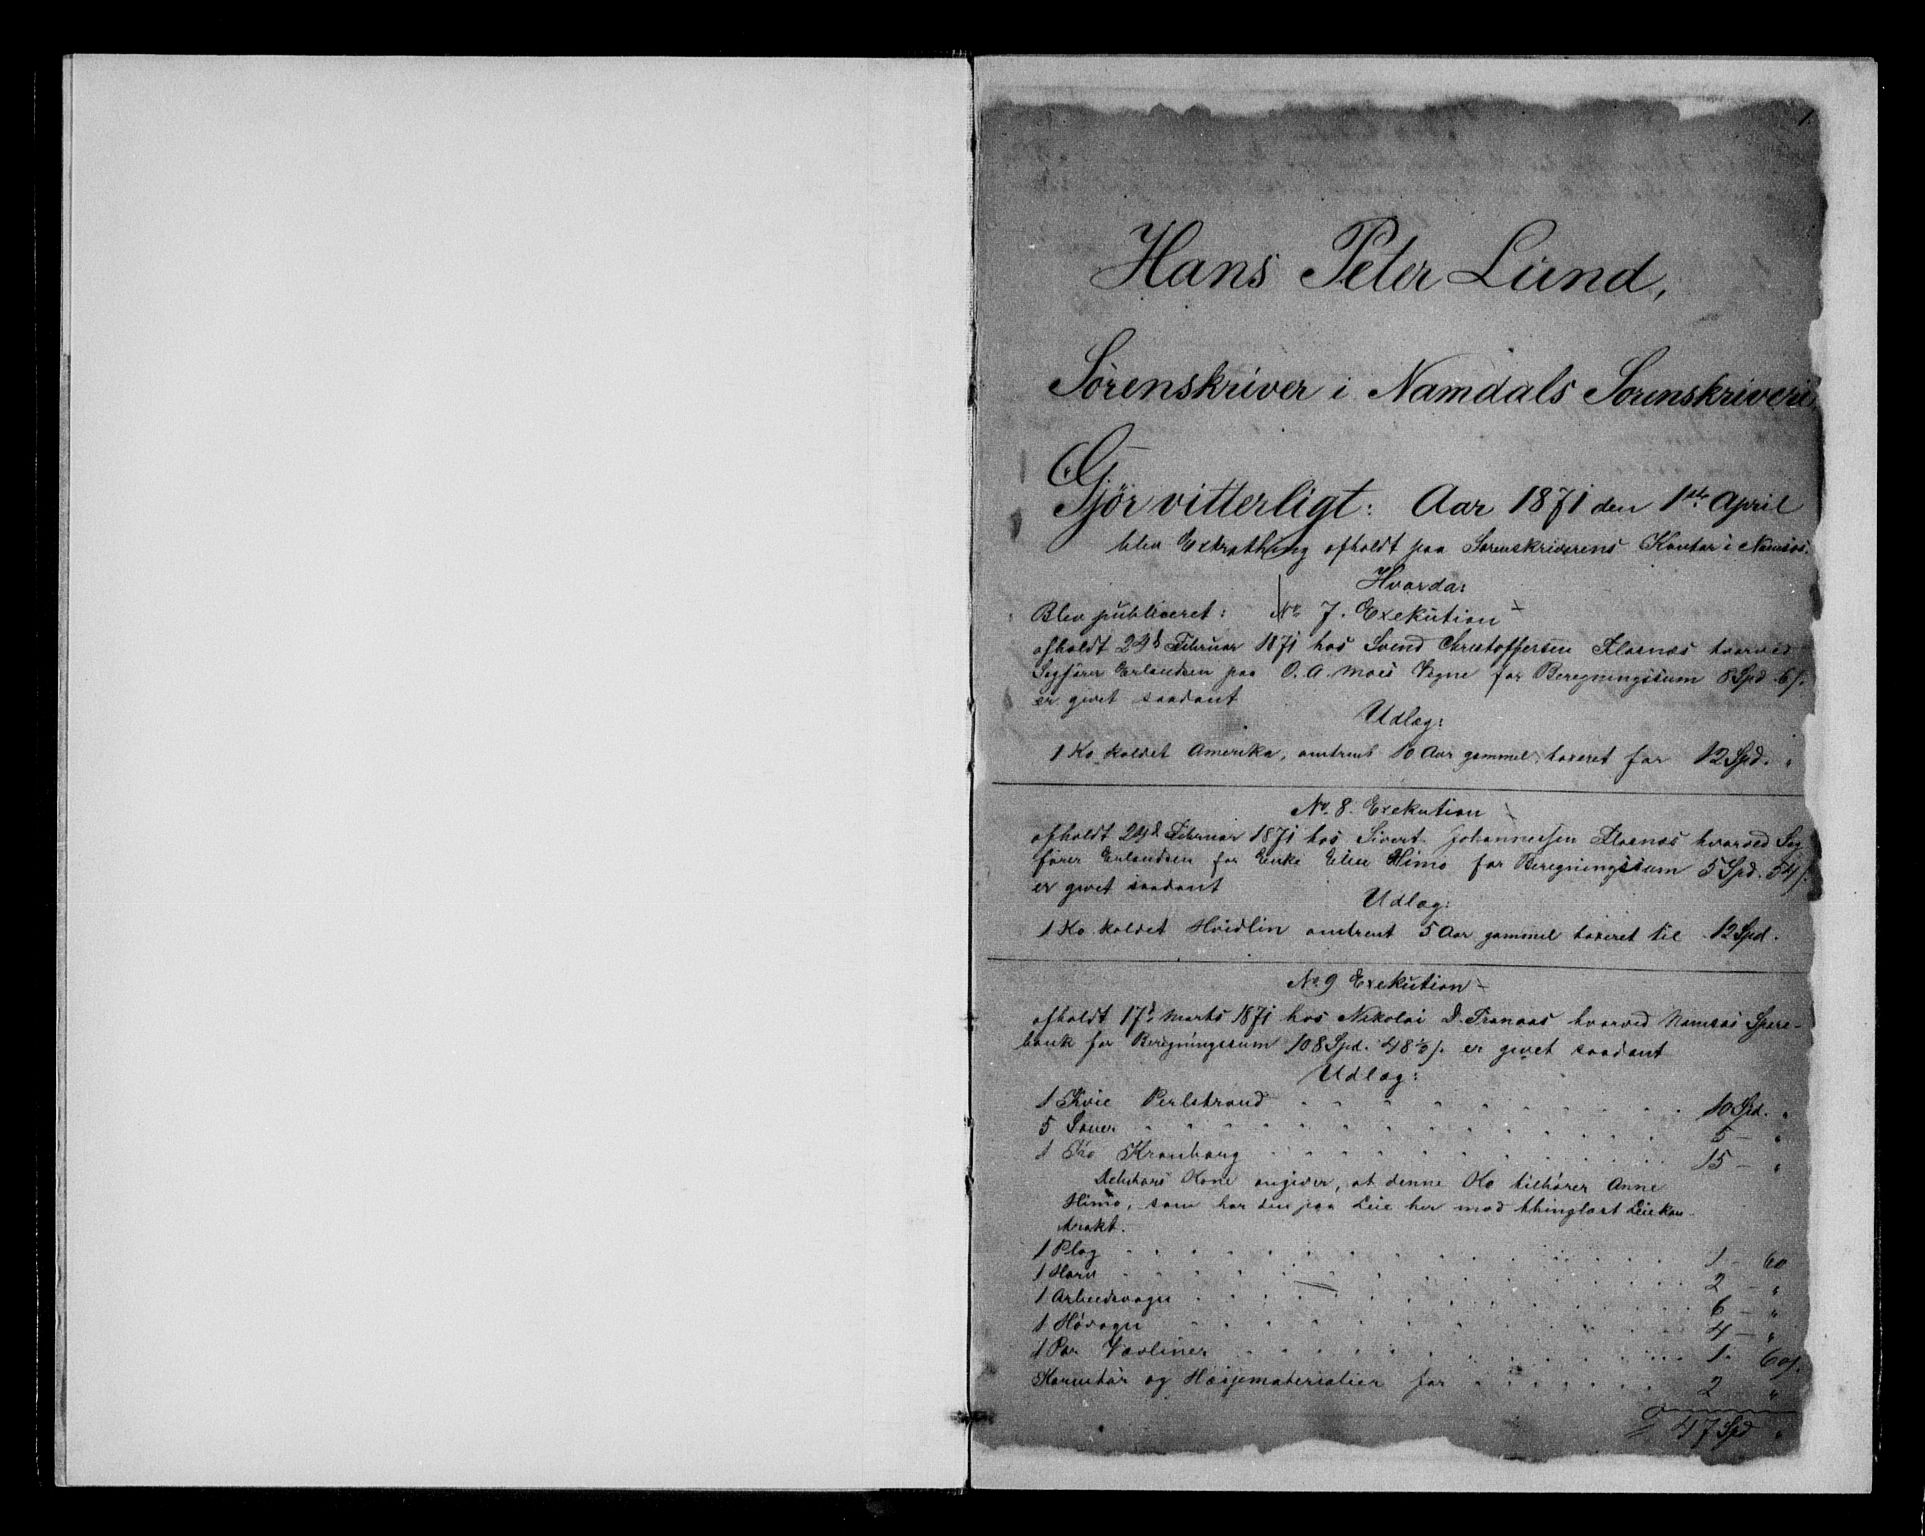 1.
Hans Peter Lund,
Sörenskriver i Namdals Sorenskriveri
Gjör vitterligt: Aar 1871 den 1ste April
blev Extrathing afholdt paa Sorenskriverens Kontor i Namsos.
Hvorda:
Blev publiceret: No 7. Exekution
afholdt 24d Februar 1871 hos Svend Christoffersen Flasnæs hvorved
Sagfører Erlandsen paa O. A. Moes Vegne for Beregningssum 8 Spd 6/.
er givet saadant
Udlæg:
1 Ko kaldet Amerika, omtrent 10 Aar gammel, taxeret for 12 Spd. "
No 8. Exekution
afholdt 24d Februar 1871 hos Sivert Johannessen Flasnæs hvorved Sag
fører Erlandsen for Enke Elen Himo for Beregningssum 5 Spd. 54/.
er givet saadant
Udlæg:
1 Ko kaldet Hvidlin omtrent 5 Aar gammel taxeret til 12 Spd.
No 9 Exekution
afholdt 17d Marts 1871 hos Nikolai D. Tranaas hvorved Namsos Spare-
bank for Beregningssum 108 Spd. 48½/. er givet saadant
Udlæg:
1 Kvie Perlstrand 10 Spd. "
5 Sauer 5 — "
1 Ko Kranborg 15 — "
Debitors Kone angiver, at denne Ko tilhører Anne
Himo, som har den paa Leie her mod thinglæst Leiekon-
trakt.
1 Plog 1 - 60
1 Harv 2 — "
1 Arbeidsvogn 6 — "
1 Høvogn 4 — "
1 Par Tævliner 1. 60/.
Korntør og Hæsjematerialier for 2 "
47 Spd "